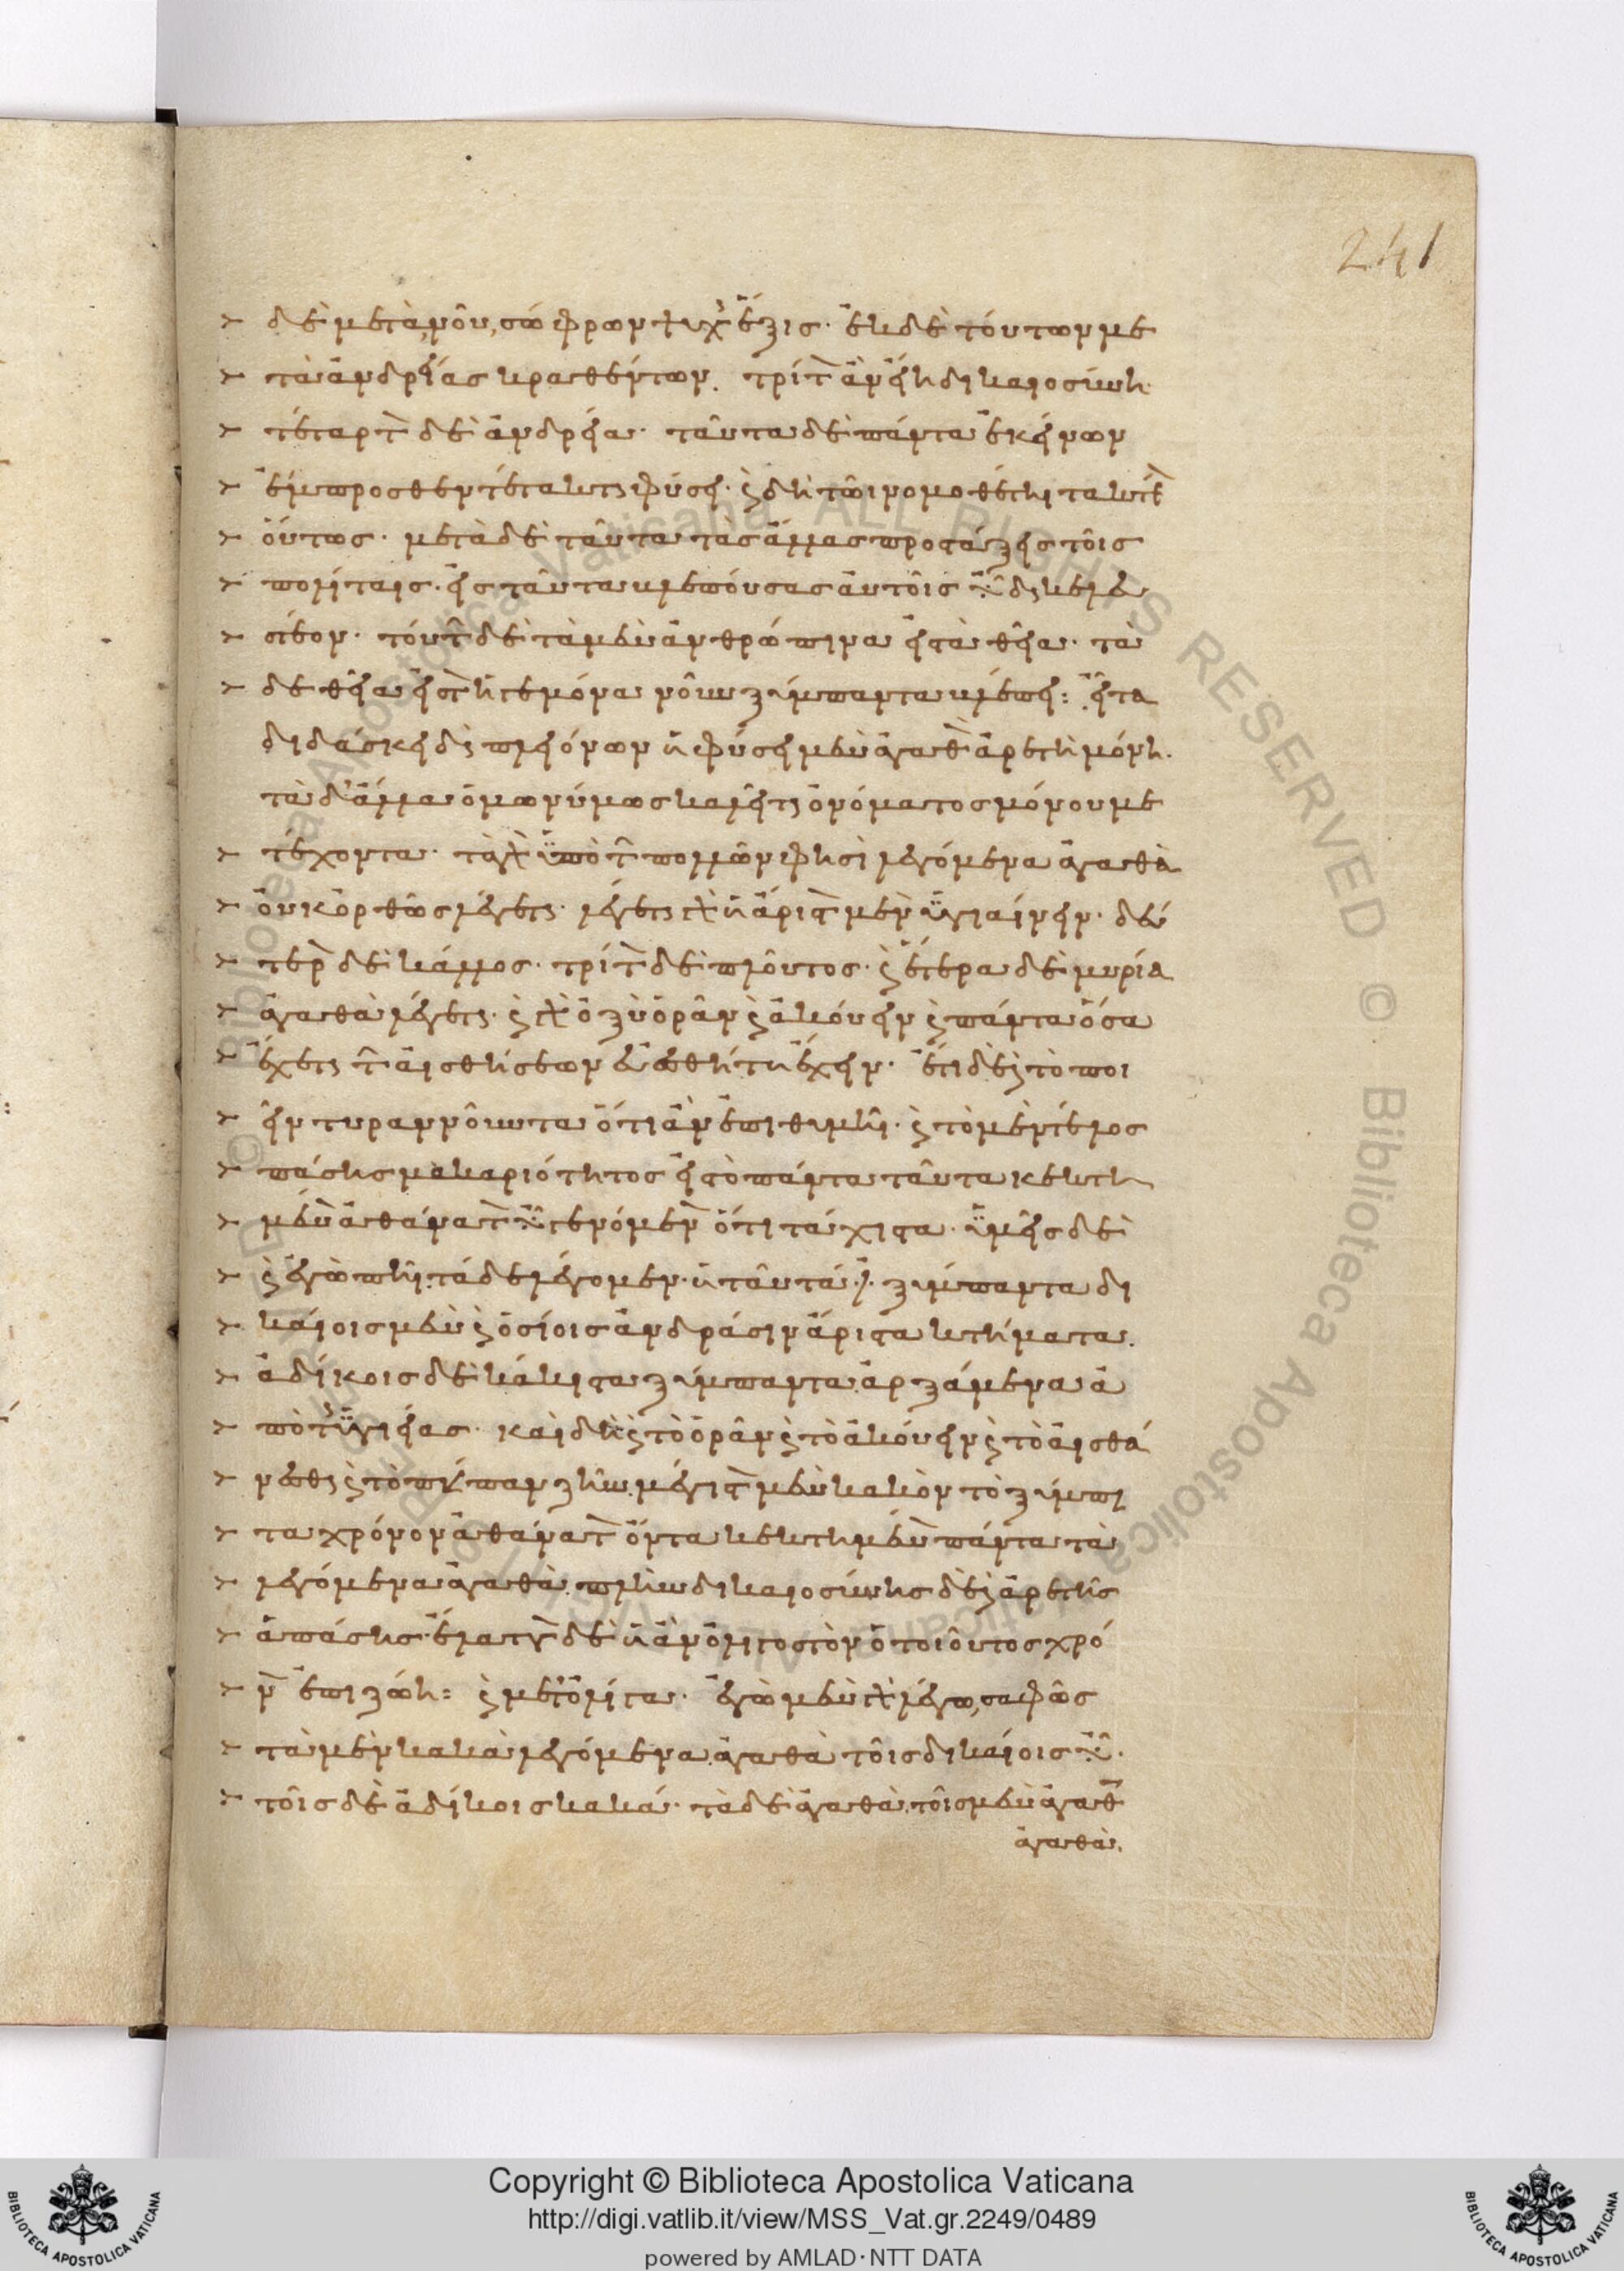 241
δὲ μετὰ νοῦ, σώφρων ψυχῆς ἕξις· ἐκ δὲ τούτων με
τὰ ἀνδρίας κραθέντων, τρίτον ἂν εἴη δικαιοσύνη·
τέταρτον δὲ ἀνδρεία· ταῦτα δὲ πάντα ἐκείνων
ἔμπροσθεν τέτακται φύσει· καὶ δὴ τῶι νομοθέτηι τακτέον
οὕτως· μετὰ δὲ ταῦτα τὰς ἄλλας προστάξεις τοῖς
πολίταις· εἰς ταῦτα βλεπούσας αὐτοῖς εἶναι διακελευ
στέον· τούτων δὲ τὰ μὲν ἀνθρώπινα εἰς τὰ θεῖα· τὰ
δὲ θεῖα εἰς τὸν ἡγεμόνα νοῦν ξύμπαντα βλέπειν: εἶτα
διδάσκει διὰ πλειόνων ἡ φύσει μὲν ἀγαθὸν ἀρετὴ μόνη·
τὰ δ' ἄλλα ὁμωνύμως καλεῖται ὀνόματος μόνου με
τέχοντα· τὰ γὰρ ὑπὸ τῶν πολλῶν φησὶ λεγόμενα ἀγαθὰ
οὐκ ὀρθῶς λέγεται· λέγεται γὰρ ὡς ἄριστον μὲν ὑγιαίνειν· δεύ
τερον δὲ κάλλος· τρίτον δὲ πλοῦτος· καὶ ἕτερα δὲ μυρία
ἀγαθὰ λέγεται· καὶ γὰρ ὀξὺ ὁρᾶν καὶ ἀκούειν καὶ πάντα ὅσα
ἔχεται τῶν αἰσθήσεων εὐαισθήτως ἔχειν· ἔτι δὲ καὶ τὸ ποι
εῖν τυραννοῦντα ὅτι ἂν ἐπιθυμῆι· καὶ τὸ μὲν τέλος
πάσης μακαριότητος εἰς τὸ πάντα ταῦτα κεκτη
μένον ἀθάνατον εἶναι γενόμενον ὅτι τάχιστα· ὑμεῖς δὲ
καὶ ἐγώ που τάδε λέγομεν· ὡς ταῦτά ἐστι ξύμπαντα δι
καίοις μὲν καὶ ὁσίοις ἀνδράσιν ἄριστα κτήματα.
ἀδίκοις δὲ κάκιστα ξύμπαντα ἀρξάμενα ἀ
πὸ τῆς ὑγιείας· καὶ δὴ καὶ τὸ ὁρᾶν καὶ τὸ ἀκούειν καὶ τὸ αἰσθά
νεσθαι καὶ τὸ παράπαν ζῆν, μέγιστον μὲν κακὸν τὸ ξύμπα
τα χρόνον ἀθάνατον ὄντα κεκτημένον πάντα τὰ
λεγόμενα ἀγαθὰ, πλὴν δικαιοσύνης δὲ καὶ ἀρετῆς
ἁπάσης· ἔλαττον δὲ ὡς ἂν ὀλίγιστον ὁ τοιοῦτος χρό
νον ἐπιζώη: καὶ μετ' ὀλίγα· ἐγὼ μὲν γὰρ λέγω, σαφῶς
τὰ μὲν κακὰ λεγόμενα, ἀγαθὰ τοῖς δικαίοις εἶναι.
τοῖς δὲ ἀδίκοις κακά· τὰ δὲ ἀγαθὰ, τοῖς μὲν ἀγαθοῖς
ἀγαθὰ,
Copyright © Biblioteca Apostolica Vaticana
http://digi.vatlib.it/view/MSS_Vat.gr.2249/0489
powered by AMLAD·NTT DATA
BIBLIOTECA APOSTOLICA VATICANA
BIBLIOTECA APOSTOLICA VATICANA
© Biblioteca Apostolica Vaticana ALL RIGHTS RESERVED